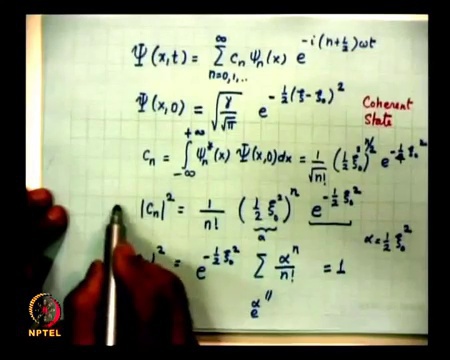 Ψ(x,t) = ∑_{n=0,1,..}^{∞} c_n ψ_n(x) e^{-i(n+½)ωt}
Ψ(x,0) = √(γ/√π) e^{-½(ξ-ξ₀)²}
Coherent
State
c_n = ∫_{-∞}^{+∞} ψ_n*(x) Ψ(x,0)dx = 1/√n! (½ξ₀²)^{n/2} e^{-¼ξ₀²}
|c_n|² = 1/n! (½ξ₀²)ⁿ e^{-½ξ₀²}
α
α = ½ξ₀²
|² = e^{-½ξ₀²} ∑ αⁿ/n! = 1
e^α
NPTEL